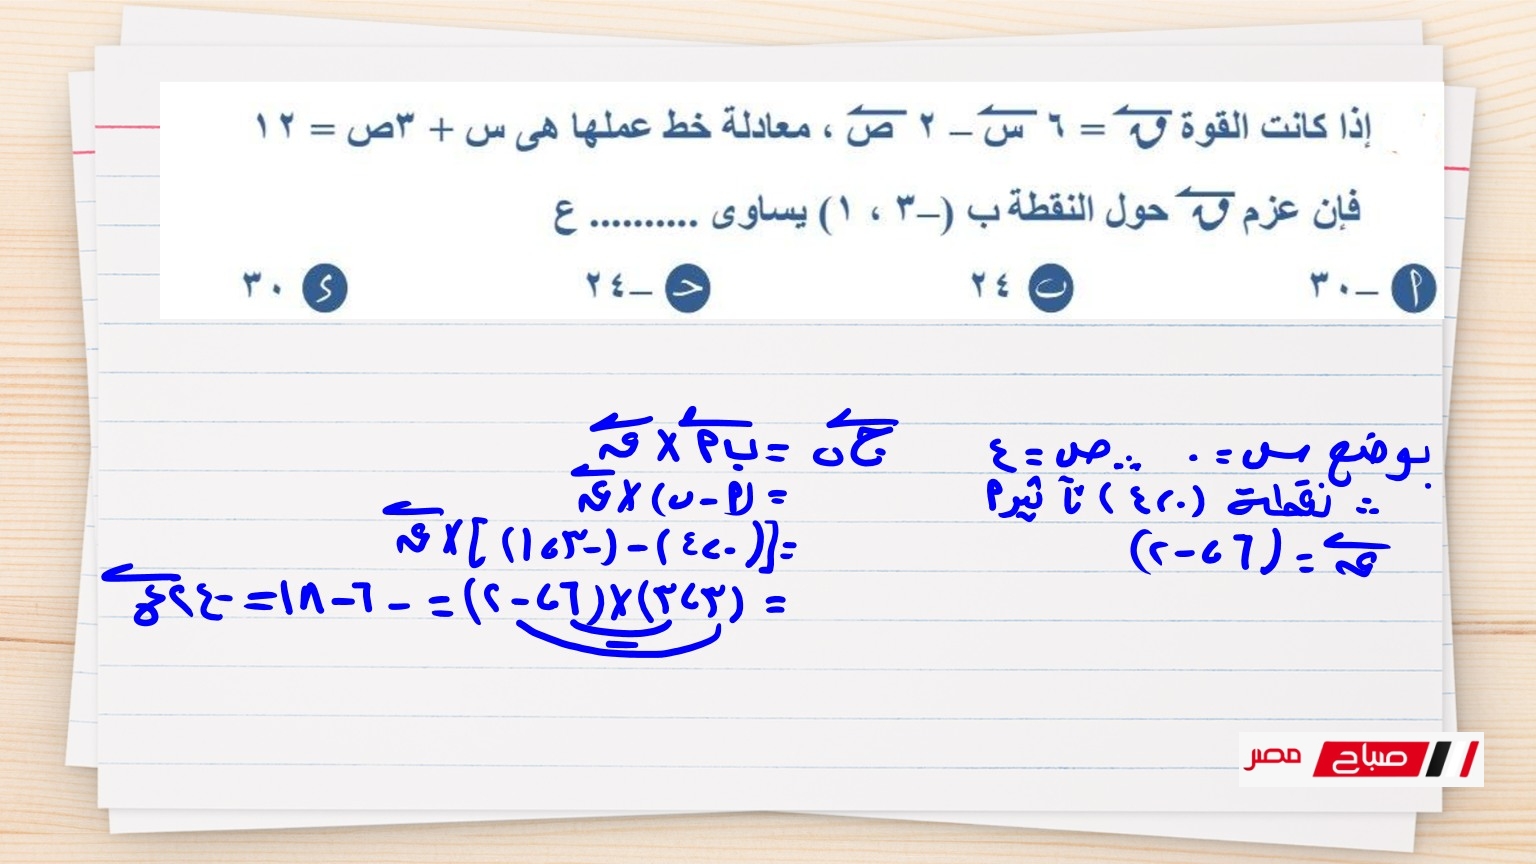 إذا كانت القوة ق = ٦ س – ٢ ص ، معادلة خط عملها هى س + ٣ص = ١٢
فإن عزم ق حول النقطة ب (–٣ ، ١) يساوى .......... ع
أ –٣٠ ب ٢٤ ج –٢٤ د ٣٠
بوضع س = ٠ ∴ ص = ٤
∴ نقطة (٠، ٤) تأثير أ
ق = (٦، -٢)
ج ب = ب أ × ق
= (أ - ب) × ق
= [(٠، ٤) - (-٣، ١)] × ق
= (٣، ٣) × (٦، -٢) = -٦ - ١٨ = -٢٤ ع
صباح مصر